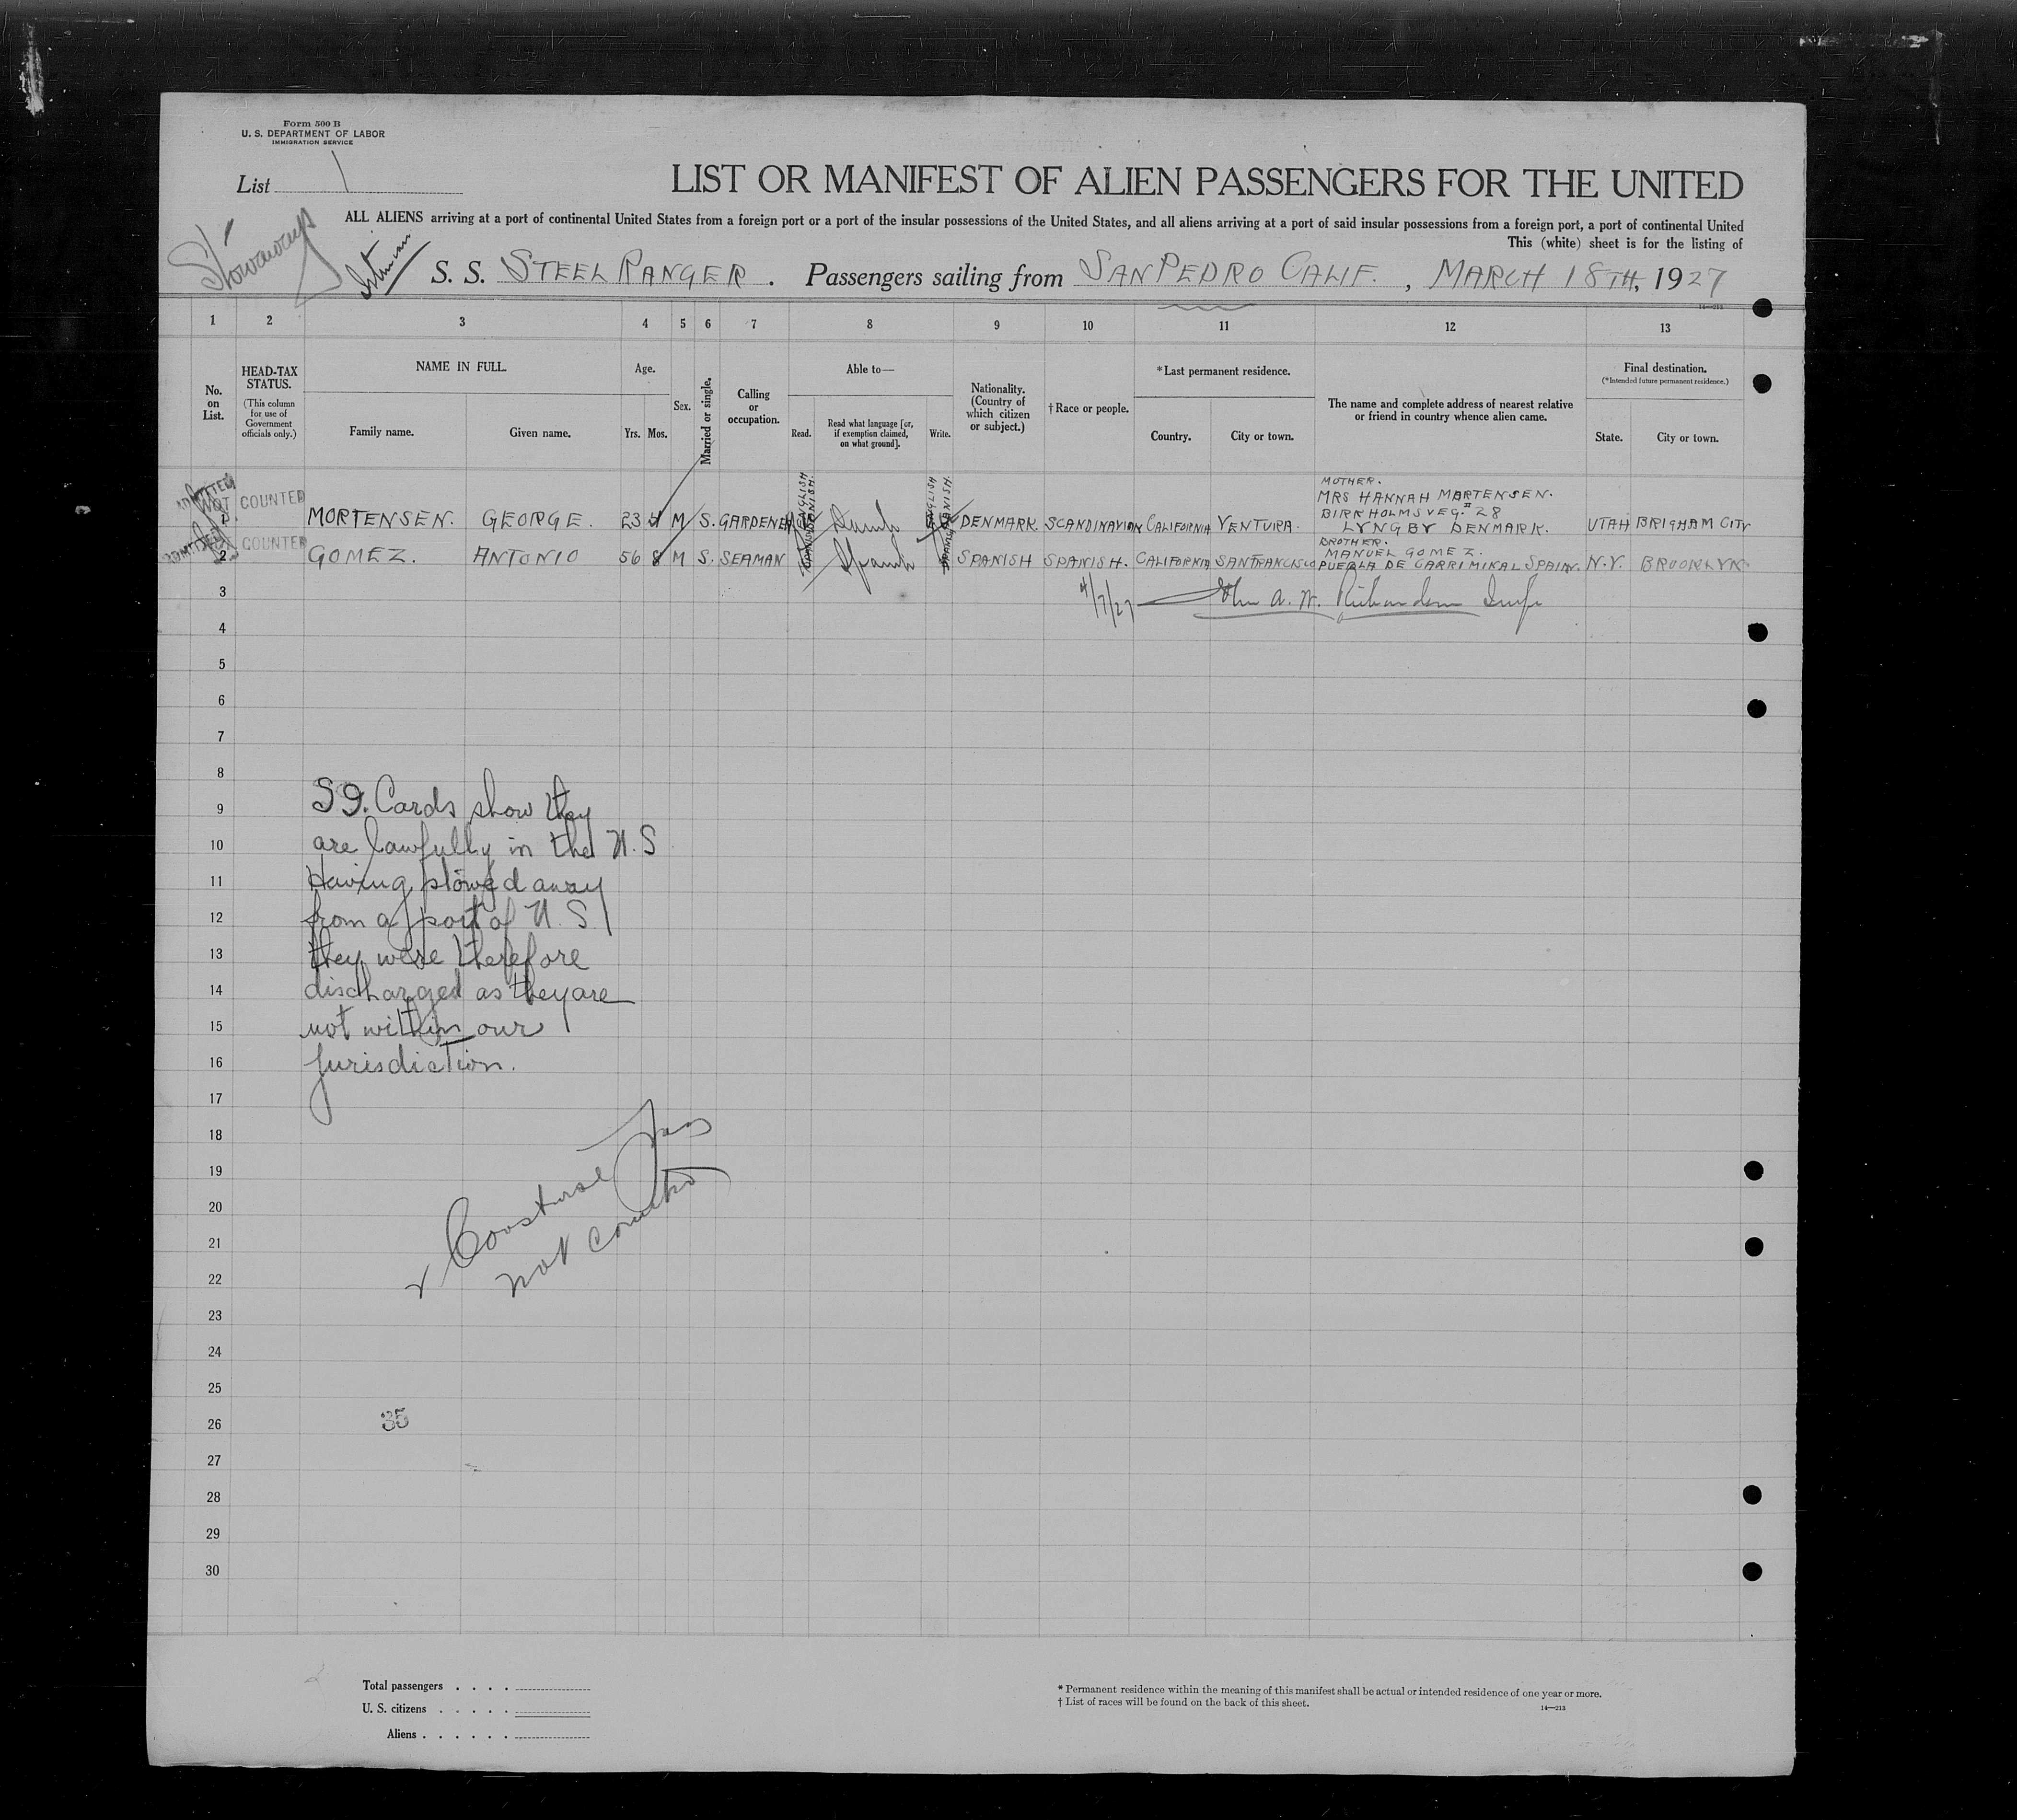 Form 500 B
U. S. DEPARTMENT OF LABOR
IMMIGRATION SERVICE
List 1
LIST OR MANIFEST OF ALIEN PASSENGERS FOR THE UNITED
ALL ALIENS arriving at a port of continental United States from a foreign port or a port of the insular possessions of the United States, and all aliens arriving at a port of said insular possessions from a foreign port, a port of continental United
This (white) sheet is for the listing of
Stowaways
S. S. STEEL RANGER. Passengers sailing from SAN PEDRO CALIF., MARCH 18TH, 1927
14—213
1 2 3 4 5 6 7 8 9 10 11 12 13
No. on List.
HEAD-TAX STATUS.
(This column for use of Government officials only.)
NAME IN FULL.
Family name. Given name.
Age.
Yrs. Mos.
Sex.
Married or single.
Calling or occupation.
Able to—
Read. Read what language [or, if exemption claimed, on what ground]. Write.
Nationality. (Country of which citizen or subject.)
†Race or people.
*Last permanent residence.
Country. City or town.
The name and complete address of nearest relative or friend in country whence alien came.
Final destination.
(*Intended future permanent residence.)
State. City or town.
ADMITTED
NOT COUNTED
1 MORTENSEN. GEORGE. 23 4 M S. GARDENER ENGLISH DANISH. Danish ENGLISH DANISH. DENMARK. SCANDINAVIAN CALIFORNIA VENTURA. MOTHER. MRS HANNAH MORTENSEN. BIRKHOLMSVEG. #28 LYNGBY DENMARK. UTAH BRIGHAM CITY
ADMITTED
COUNTED
2 GOMEZ. ANTONIO 56 8 M S. SEAMAN SPANISH Spanish SPANISH SPANISH SPANISH. CALIFORNIA SANFRANCISCO BROTHER. MANUEL GOMEZ. PUEBLA DE CARRIMIKAL SPAIN. N.Y. BROOKLYN.
3 4/7/27 Jno A. W. Richardson Insp
4
5
6
7
8
9 SI. Cards show they
10 are lawfully in the U.S
11 Having stowed away
12 from a port of U.S.
13 they were therefore
14 discharged as they are
15 not within our
16 jurisdiction.
17
18
19
20 Coastwise Pass
21 not counted
22
23
24
25
26 35
27
28
29
30
Total passengers . . . .
U. S. citizens . . . . .
Aliens . . . . . .
* Permanent residence within the meaning of this manifest shall be actual or intended residence of one year or more.
† List of races will be found on the back of this sheet.
14—213